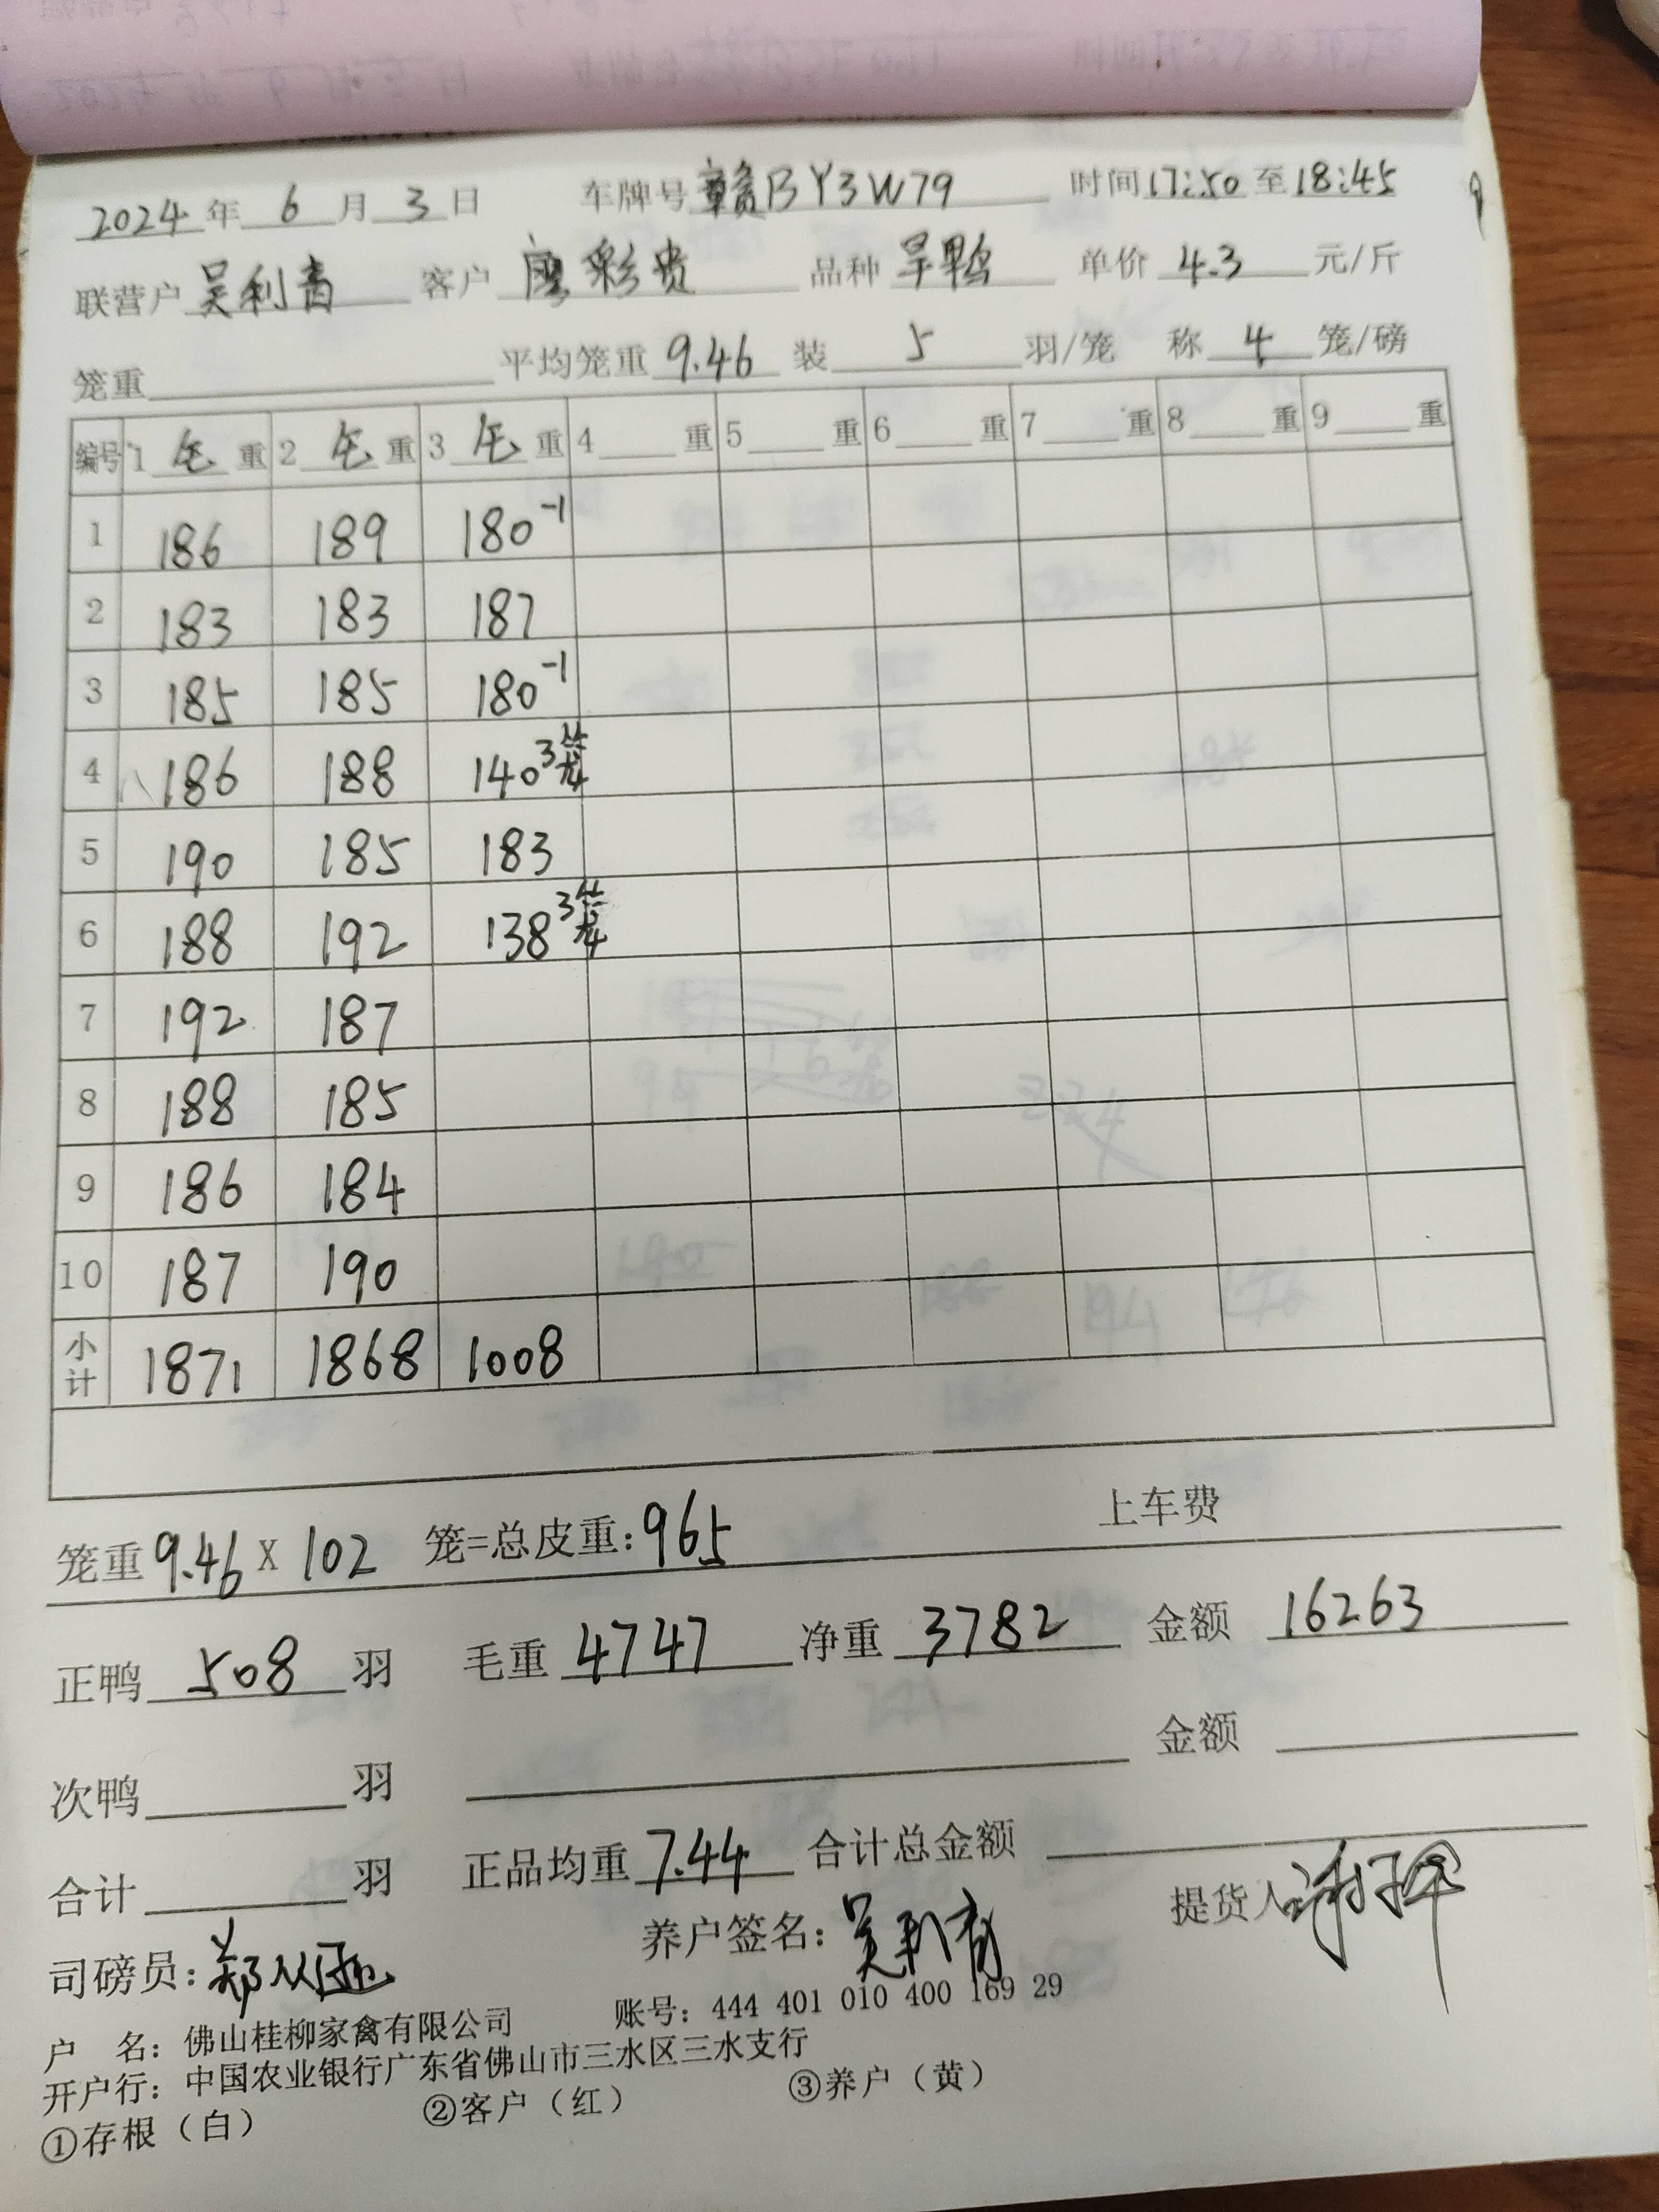 2024 年 6 月 3 日 车牌号 赣BY3W79 时间 17:50 至 18:45
联营户 吴利青 客户 廖彩贵 品种 旱鸭 单价 4.3 元/斤
笼重 平均笼重 9.46 装 5 羽/笼 称 4 笼/磅
编号 1 毛 重 2 毛 重 3 毛 重 4 重 5 重 6 重 7 重 8 重 9 重
1 186 189 180⁻¹
2 183 183 187
3 185 185 180⁻¹
4 186 188 140 3笼
5 190 185 183
6 188 192 138 3笼
7 192 187
8 188 185
9 186 184
10 187 190
小计 1871 1868 1008
笼重 9.46 X 102 笼=总皮重: 965 上车费
正鸭 508 羽 毛重 4747 净重 3782 金额 16263
次鸭 羽 金额
合计 羽 正品均重 7.44 合计总金额
司磅员: 养户签名: 吴利青 提货人
户 名: 佛山桂柳家禽有限公司 账号: 444 401 010 400 169 29
开户行: 中国农业银行广东省佛山市三水区三水支行
①存根（白） ②客户（红） ③养户（黄）